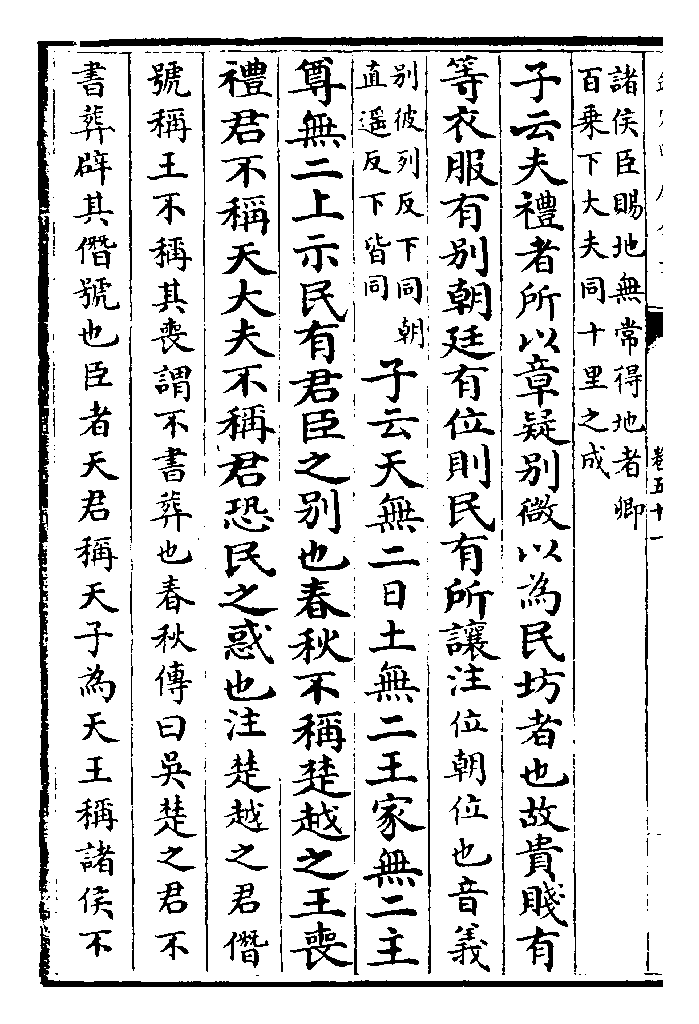 諸侯臣賜地無常得地者卿
百乗下大夫同十里之成
子云夫禮者所以章疑别微以為民坊者也故貴賤有
等衣服有别朝廷有位則民有所讓注位朝位也音義
别彼列反下同朝
直遥反下皆同
子云天無二日土無二王家無二主
尊無二上示民有君臣之别也春秋不稱楚越之王喪
禮君不稱天大夫不稱君恐民之惑也注楚越之君僭
號稱王不稱其喪謂不書葬也春秋傳曰吳楚之君不
書葬辟其僭號也臣者天君稱天子為天王稱諸侯不
卷五十一